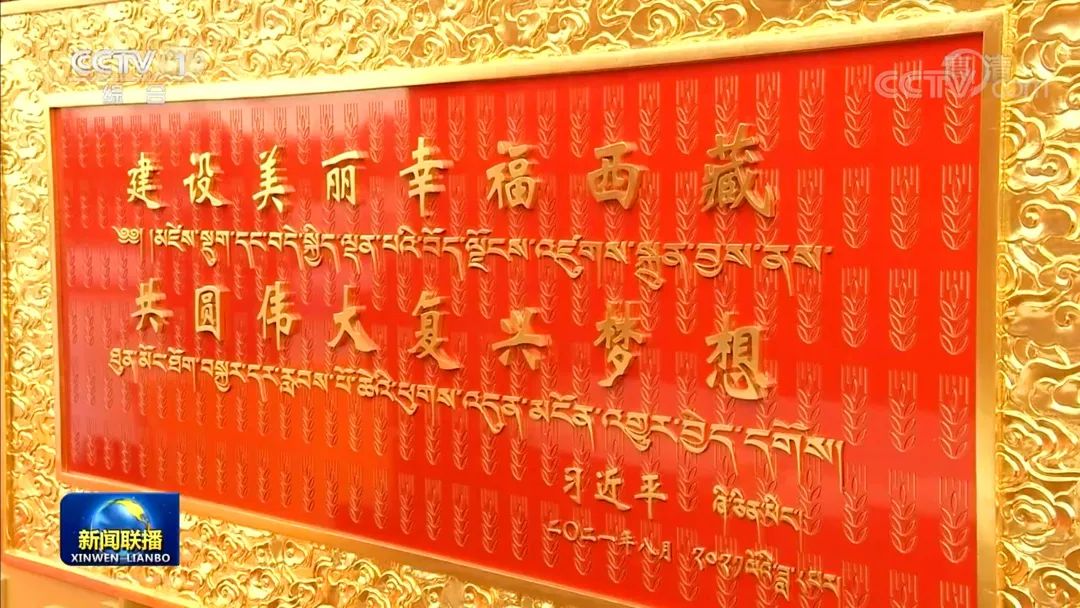 CCTV 1
综合
CCTV.com
高清
建设美丽幸福西藏
༄༅། །མཛེས་སྡུག་དང་བདེ་སྐྱིད་ལྡན་པའི་བོད་ལྗོངས་འཛུགས་སྐྲུན་བྱས་ནས་
共圆伟大复兴梦想
ཐུན་མོང་ཐོག་བསྐྱར་དར་རླབས་པོ་ཆེའི་ཕུགས་འདུན་མངོན་འགྱུར་བྱེད་དགོས།
习近平 ཞི་ཅིན་ཕིང་།
二〇二一年八月 ༢༠༢༡ལོའི་ཟླ་༨པར
新闻联播
XINWEN-LIANBO